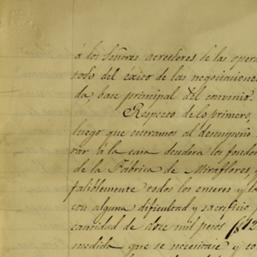 á los Señores acreedores de las opera
todo del éxito de las negociacion
da, base principal del convenio.
Respecto de lo primero,
luego que entramos al desempeño
rár á la casa deudora los fondo
de la Fábrica de Miraflores, y
faliblemente todos los eneros y la
con alguna dificultad y sacrificio
cantidad de doce mil pesos ($12
medida que se necesitase y